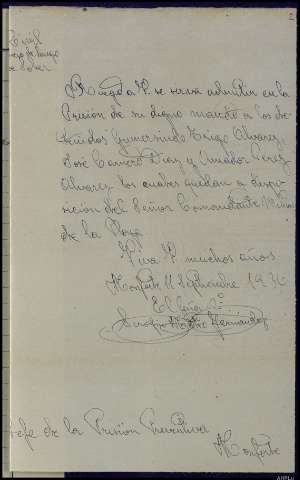 Civil
Ruego a V. se sirva admitir en la
Prisión de su digno mando a los de-
tenidos Gumersindo Iñigo Alvarez
José Carnero Diaz y Amador Perez
Alvarez los cuales quedan a dispo-
sición del Señor Comandante Militar
de la Plaza
Viva V. muchos años
Monforte 11 Septiembre 1936
El
Hernandez
Jefe de la Prisión Preventiva
Monforte